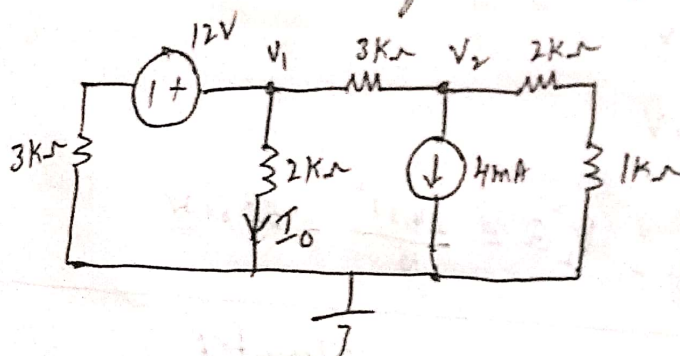 12V
V₁
3KΩ
V₂
2KΩ
+
3KΩ
2KΩ
4mA
1KΩ
I₀